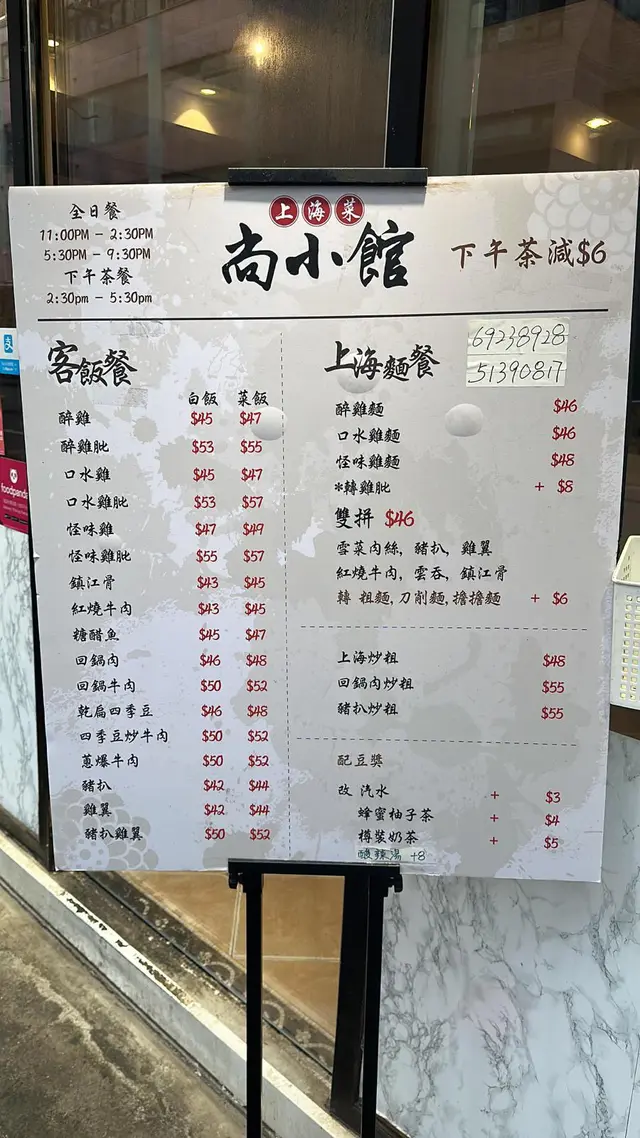 全日餐
11:00PM - 2:30PM
5:30PM - 9:30PM
下午茶餐
2:30pm - 5:30pm
上海菜
尚小館
下午茶減$6
客飯餐
白飯 菜飯
醉雞 $45 $47
醉雞肶 $53 $55
口水雞 $45 $47
口水雞肶 $53 $57
怪味雞 $47 $49
怪味雞肶 $55 $57
鎮江骨 $43 $45
紅燒牛肉 $43 $45
糖醋魚 $45 $47
回鍋肉 $46 $48
回鍋牛肉 $50 $52
乾扁四季豆 $46 $48
四季豆炒牛肉 $50 $52
蔥爆牛肉 $50 $52
豬扒 $42 $44
雞翼 $42 $44
豬扒雞翼 $50 $52
上海麵餐
69238928
51390817
醉雞麵 $46
口水雞麵 $46
怪味雞麵 $48
*轉雞肶 + $8
雙拼 $46
雪菜肉絲, 豬扒, 雞翼
紅燒牛肉, 雲吞, 鎮江骨
轉 粗麵,刀削麵,擔擔麵 + $6
上海炒粗 $48
回鍋肉炒粗 $55
豬扒炒粗 $55
配豆獎
改 汽水 + $3
蜂蜜柚子茶 + $4
樽裝奶茶 + $5
酸辣湯 +8
foodpanda